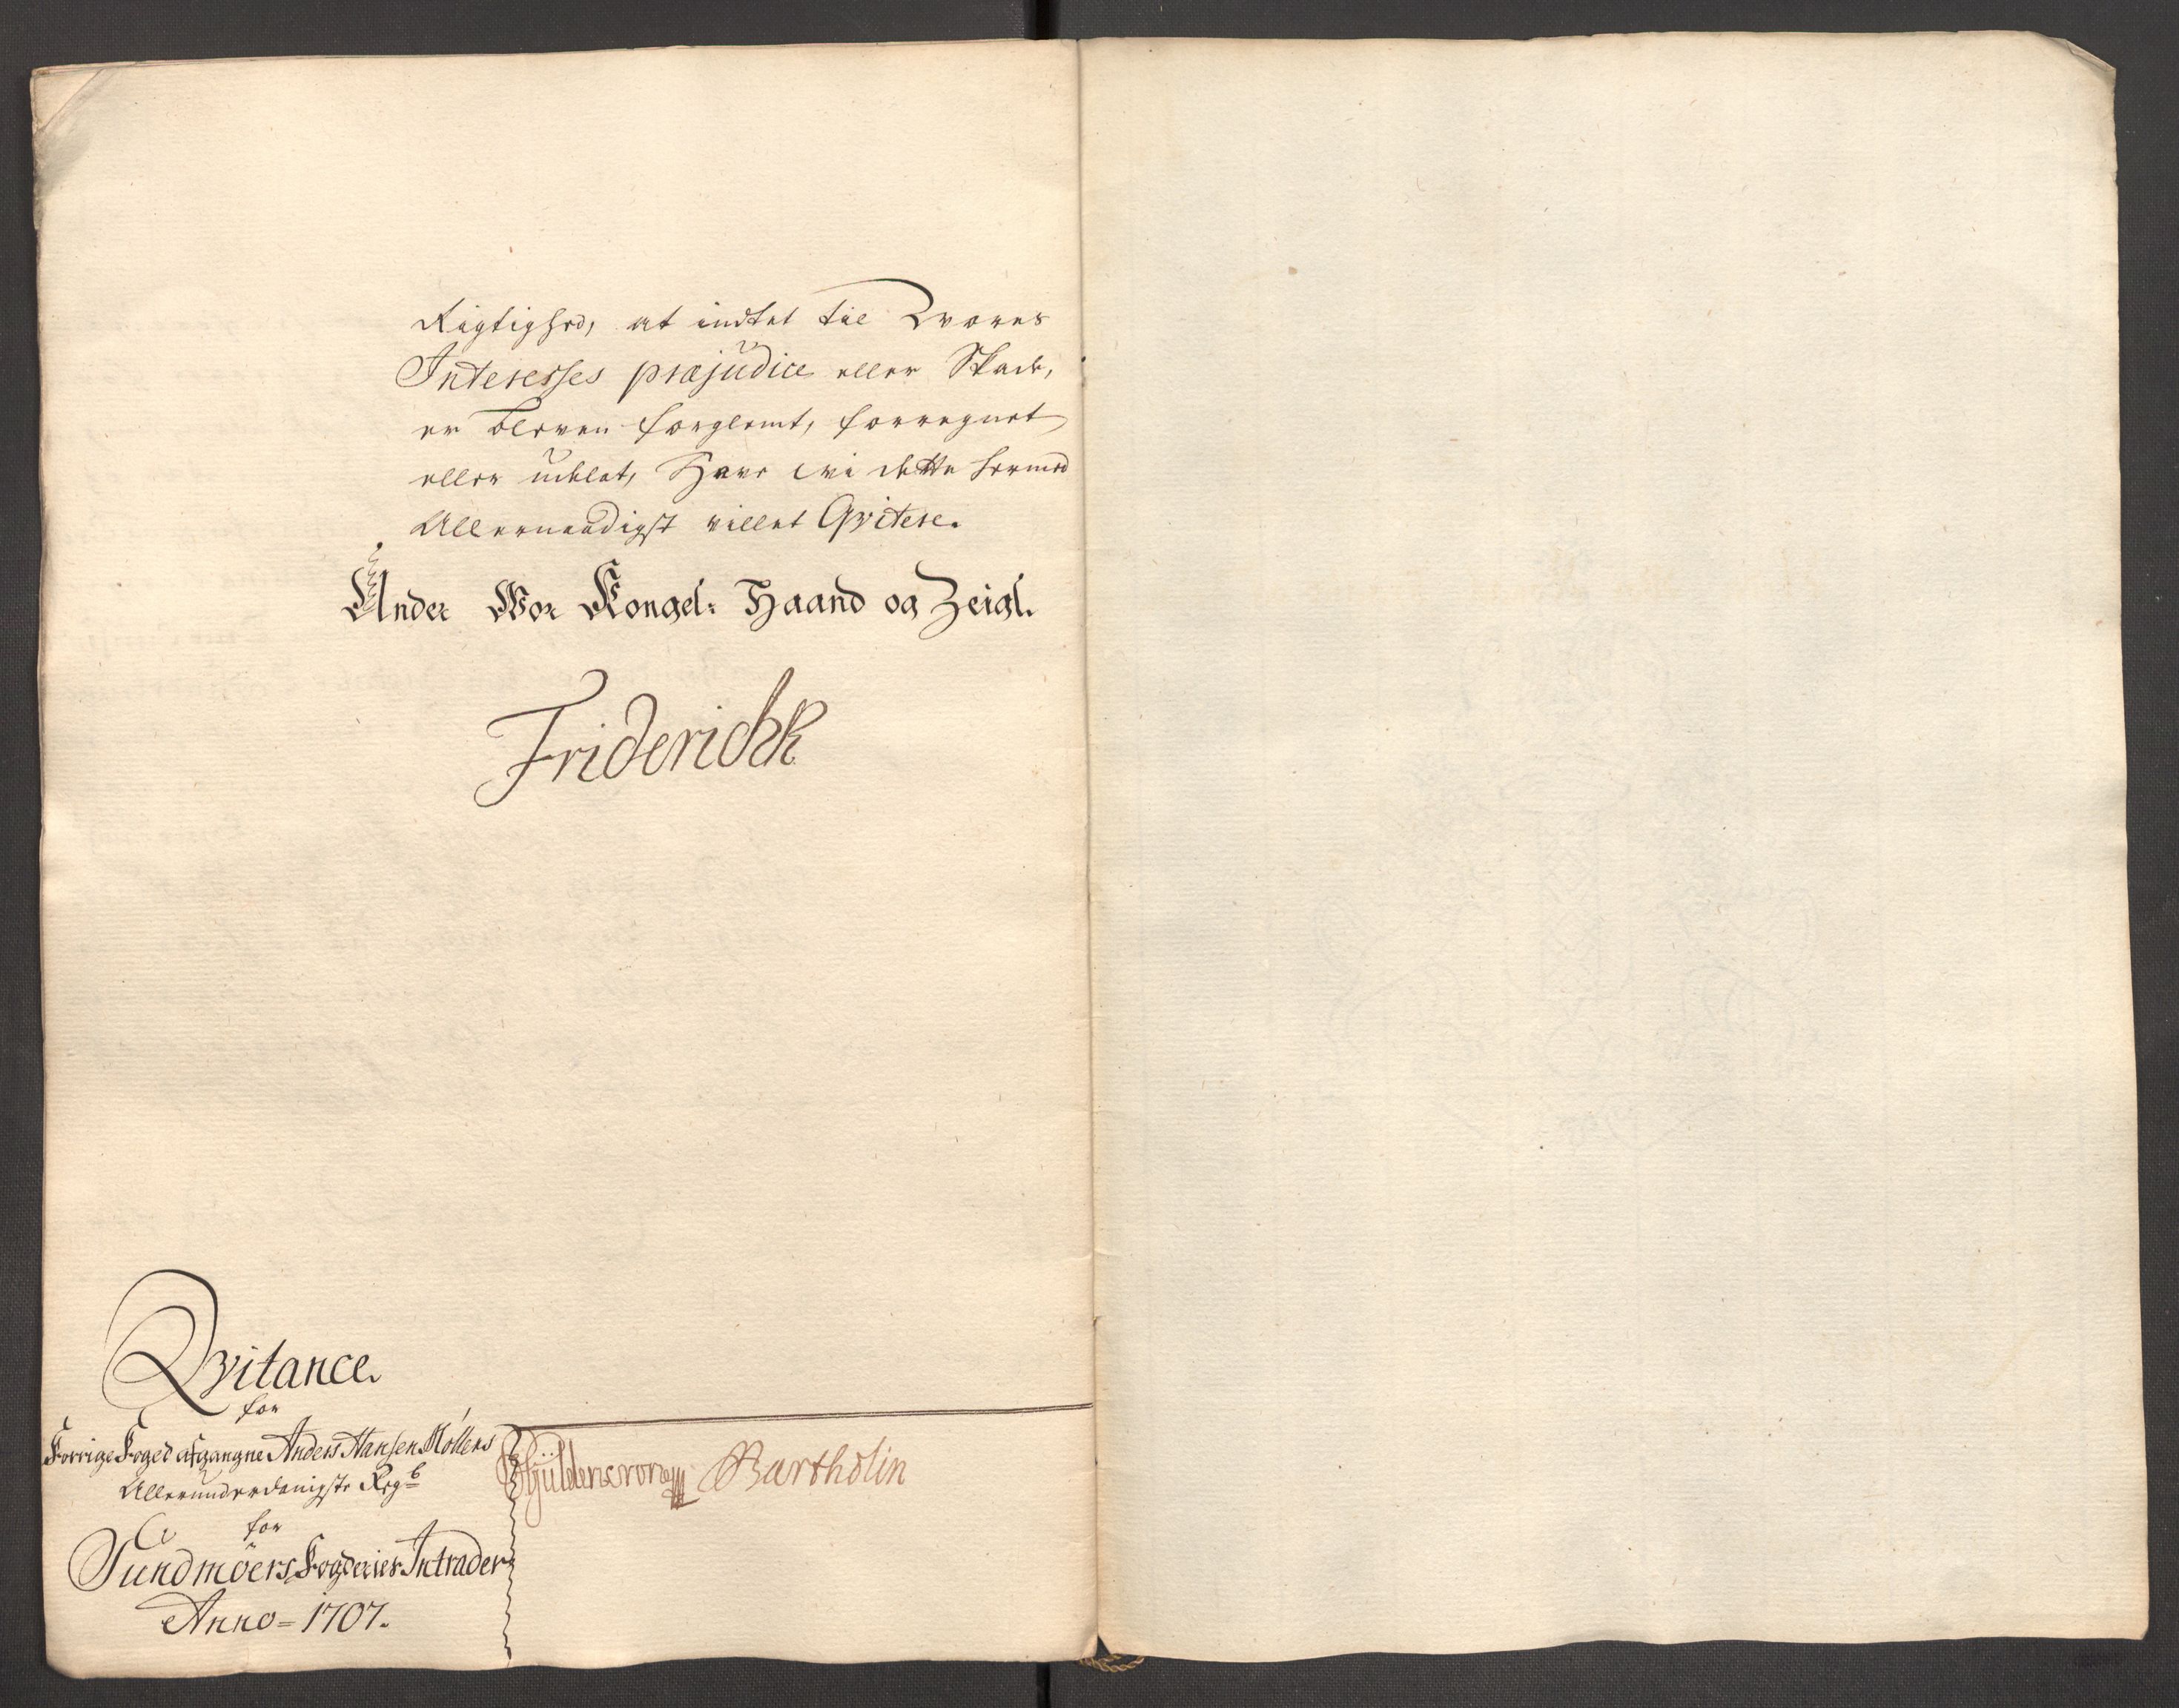 Rigtighed, at indtet til Wores
Interesses præjudice eller Skade,
er bleven forglemt, forregnet
eller udelat, Have wi dette hermed
Allernaadigst villet Qvitere.
Under Wor Kongel: Haand og Zeigl.
FriderichR
Qvitance.
for
Forrige Foged afgangne Anders Hansen Möllers
Allerunderdanigste Regb
for
Sundmöers Fogderies Intrader
Anno = 1707.
Gÿldencrone Bartholin